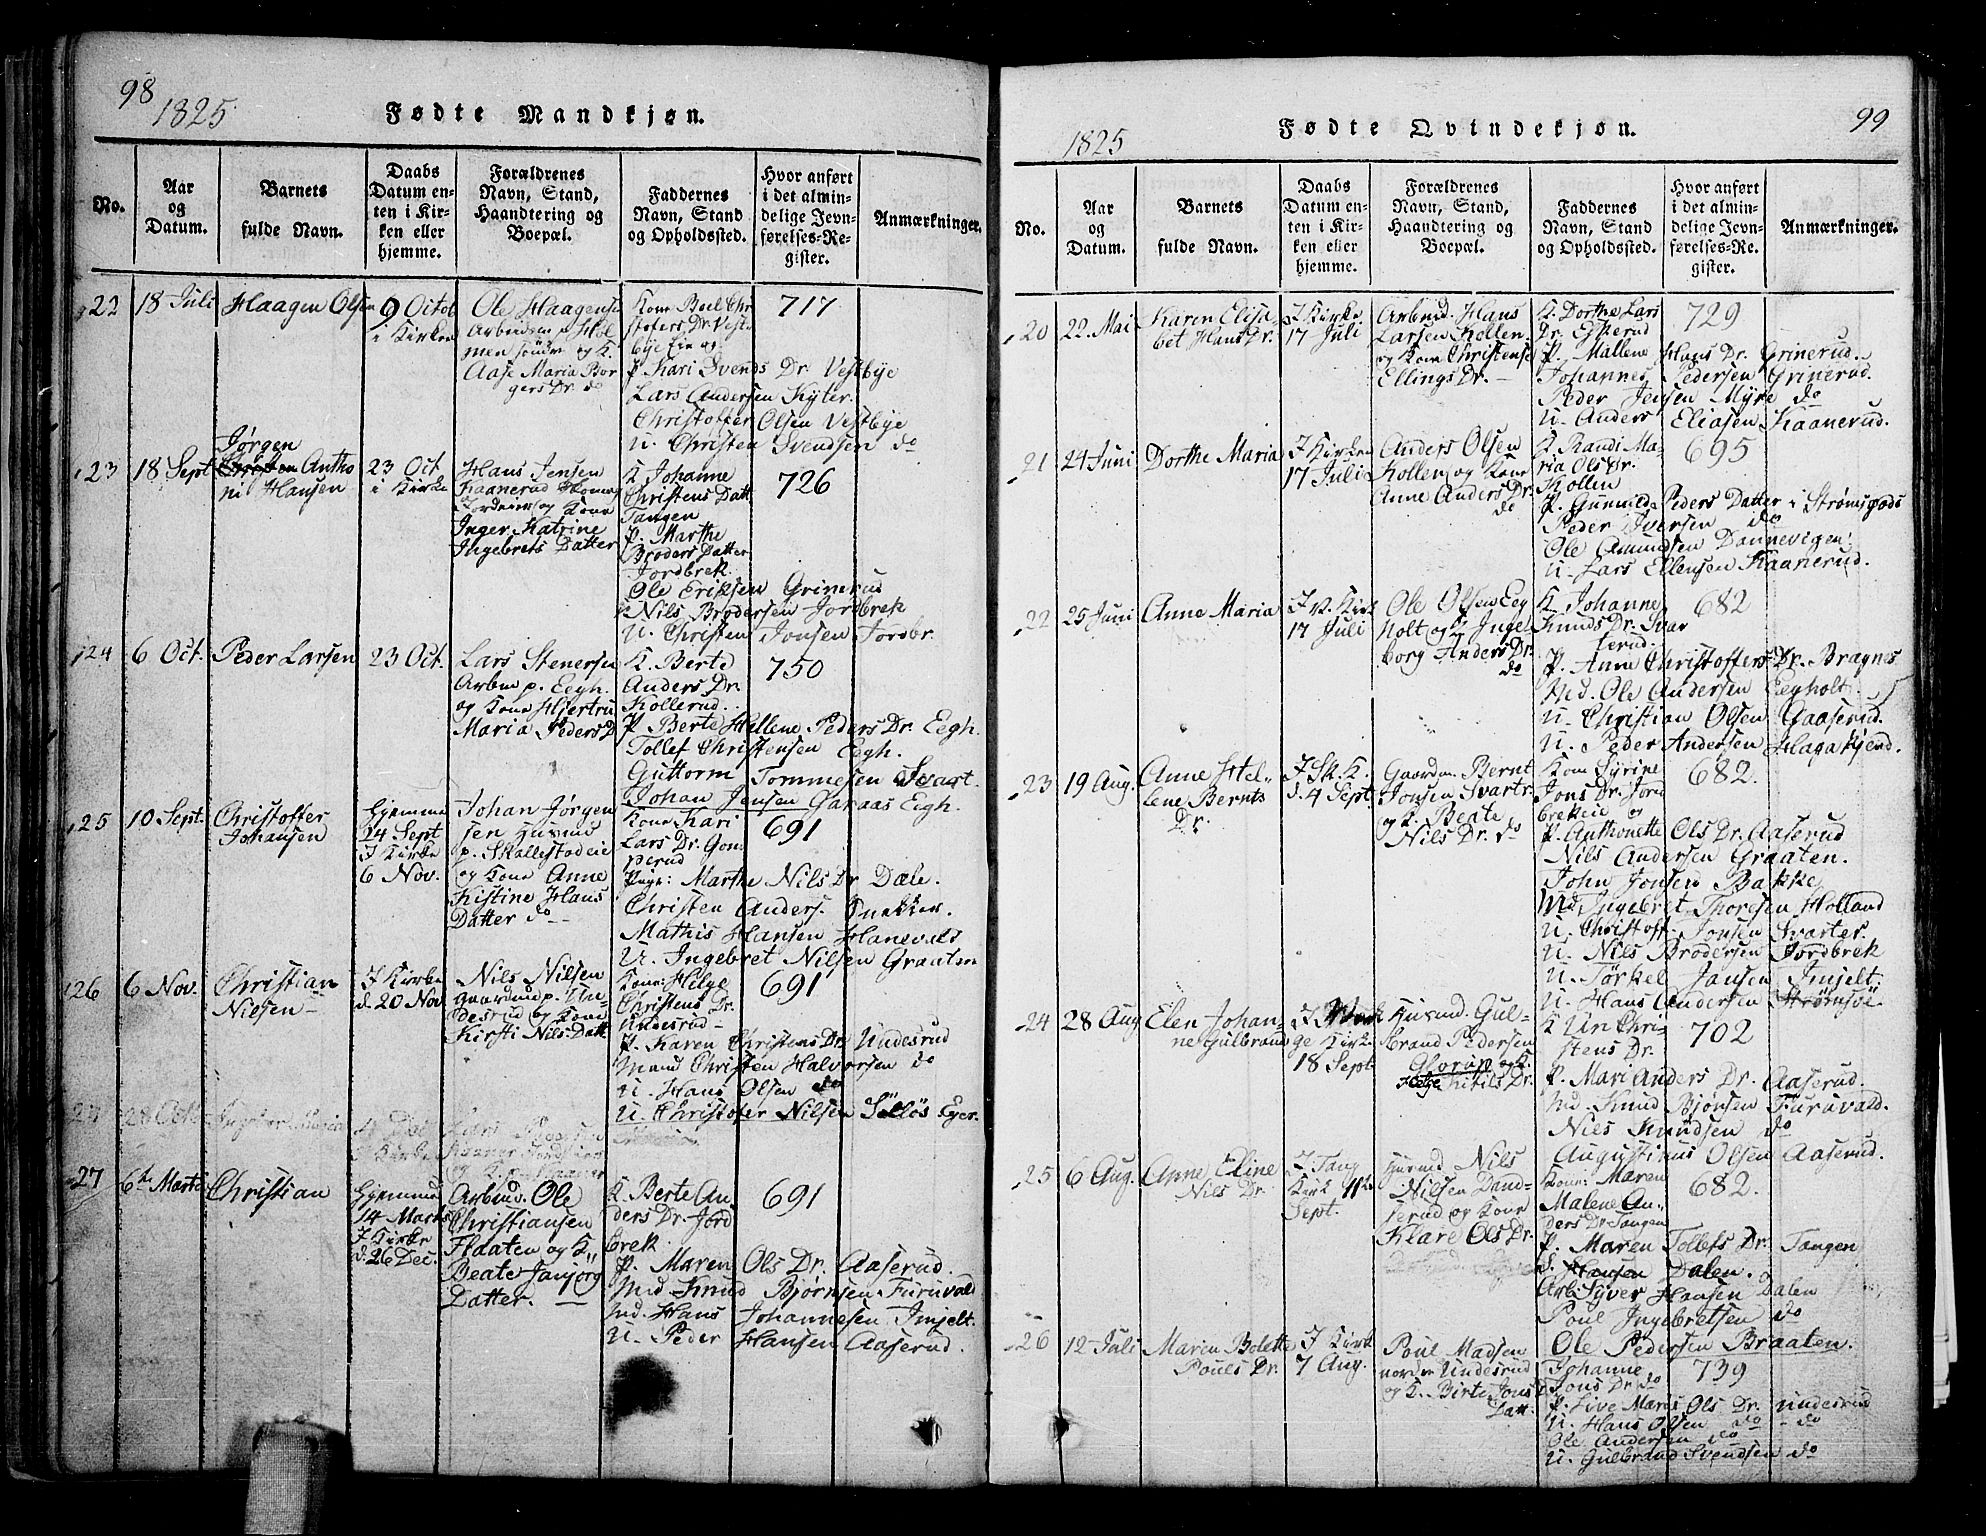 98
1825
Fødte Mandkjøn.
No.
Aar
og
Datum.
Barnets
fulde Navn.
Daabs
Datum en-
ten i Kir-
ken eller
hjemme.
Forældrenes
Navn, Stand,
Haandtering og
Boepæl.
Faddernes
Navn, Stand
og Opholdssted.
Hvor anført
i det almin-
delige Jevn-
førelses-Re-
gister.
Anmærkninger.
22
18 Juli
Haagen Olsen
9 Octob
i Kirken
Ole Haagense
Arbeidsm p
men søndr og K.
Aase Maria Bor
gers Dr. do
Kone Chr
stofers Dr. Vest
bye Eie og
P. Kari Svends Dr. Vestbye
Lars Andersen Kyter.
Christoffer Olsen Vestbye
U. Christen Svendsen do
717
23
18 Sept
Jørgen
Antho
ni Hansen
23 Oct
i Kirke
Hans Jensen
Kaanerud
og Kone
Inger Katrine
Ingebrets Datter
K Johanne
Christens Datt
Tangen
P. Marthe
Broders Datter
Jordbrek.
Ole Eriksen Grinerud
Nils Brodersen Jordbrek
U. Christen Jonsen Jordbr.
726
24
6 Oct.
Peder Larsen
23 Oct.
Lars Stenersen
Arbm p. Eegh.
og Kone Hjertru
Maria Peders D
K. Berte
Anders Dr.
Kollerud.
P. Berte Hellene Peders Dr. Eegh.
Tollef Christensen Eegh.
Guttorm Tommesen Svart
Johan Jensen Garaas Eegh.
750
25
10 Sept.
Christoffer
Johansen
Hjemme
24 Sept
I Kirke
6 Nov.
Johan Jørgen
sen Husmd
p. Skallestadeie
og Kone Anne
Kistine Hans
Datter do
Kone Kari
Lars Dr. Gom
perud
Pige: Marthe Nils Dr Dæle.
Christen Anders. Snekker.
Mathis Hansen Hanevald
U. Ingebret Nilsen Graaten
691
26
6 Nov.
Christian
Nielsen
I Kirke
d. 20 Nov
Nils Nilsen
Gaardmd p. Un-
desrud og Kone
Kirsti Nils Datt
Kone Helge
Christens Dr.
Undesrud
P. Karen Christens Dr. Undesrud
Mand Christen Halvorsen do
U. Hans Olsen do
U. Christofer Nilsen Sølløs Eger.
691
27
6te Marts
Christian
Hjemme
14 Marts
I Kirke
d. 26 Dec.
Arbmd. Ole
Christiansen
Flaaten og K.
Beate Janjørg
Datter.
K. Berte An
ders Dr. Jord
brek.
P. Maren Ols Dr. Aaserud.
Md Knud Bjørnsen Furuvald
Md. Hans Johannesen Imjelt.
U. Peder Hansen Aaserud.
691
99
1825
Fødte Qvindekjøn.
No.
Aar
og
Datum.
Barnets
fulde Navn.
Daabs
Datum en-
ten i Kir-
ken eller
hjemme.
Forældrenes
Navn, Stand,
Haandtering og
Boepæl.
Faddernes
Navn, Stand
og Opholdssted.
Hvor anført
i det almin-
delige Jevn-
førelses-Re-
gister.
Anmærkninger.
20
22 Mai
Karen Elisa
bet Hans Dr.
I Kirke
17 Juli
Arbmd. Hans
Larsen Kollen
og Kone Christense
Ellings Dr.
K. Dorthe Lars
Dr. Eskerud
P. Mallene Hans Dr. Grinerud.
Johannes Pedersen Grinerud.
Peder Jensen Myre do
U. Anders Eliasen Kaanerud.
729
21
24 Juni
Dorthe Maria
I Kirken
17 Juli
Anders Olsen
Kollen og Kone
Anne Anders Dr.
do
K. Randi Ma-
ria Ols Dr.
Kollen
P. Gunnild Peders Datter i Strømsgods
Peder Iversen do
Ole Amundsen Dannevigen
U. Lars Ellensen Kaanerud.
695
22
25 Juni
Anne Maria
I V. Kirk
17 Juli
Ole Olsen Eeg
holt og K. Inge-
borg Anders Dr.
do
K. Johanne
Knuds Dr. Ivar
serud.
P. Anne Christoffers Dr. Bragnes
Md. Ole Andersen Eegholt.
U. Christian Olsen Gaaserud.
U. Peder Andersen Haga Kjend.
682
23
19 Aug.
Anne Hel-
lene Bernts
Dr.
I Sk. K.
d. 4 Sept
Gaardm. Bernt
Jonsen Svartr
og K. Beate
Nils Dr. do
Kone Syrine
Jons Dr. Jord
brekeie og
P. Anthonette Ols Dr. Aaserud
Nils Andersen Graaten.
John Jonsen Bakke
Md. Ingebret Thoresen Holland
U. Christoff. Jonsen Svarter.
U. Nils Brodersen Jordbrek
U. Tørkel Jansen Imjelt.
U. Hans Andersen Strømsøe
682
24
28 Aug
Elen Johan-
ne Gulbrand
ge Kirk.
18 Sept
Husmd. Gul-
brand Pedersen
Glorup og K.
Helge Kitils Dr.
K Uri Chri-
stens Dr.
P. Mari Anders Dr. Aaserud.
Md. Knud Bjønsen Furuvald.
Niels Knudsen do
Augustinus Olsen Aaserud.
702
25
6 Aug.
Anne Eline
Nils Dr.
I Tang
Kirk 11te
Sept.
Husmd Nils
Nilsen Dand-
serud og Kone
Klare Ols Dr.
Kone: Maren
Malene An-
ders Dr Tangen
P. Maren Tollefs Dr. Tangen
Hansen Dalen.
Arb. Syver Hansen Dalen
Poul Ingebretsen do
Ole Pedersen Braaten.
682.
26
12 Juli
Maren Bolette
Pouls Dr.
I Kirk
7 Aug.
Poul Madsen
nordre Undesrud
og K. Birte Jons
Datt.
Johanne
Jons Dr. do
P. Live Maris Ols Dr. Undesrud
U. Hans Olsen do do
Ole Andersen do
U. Gulbrand Svendsen do
739